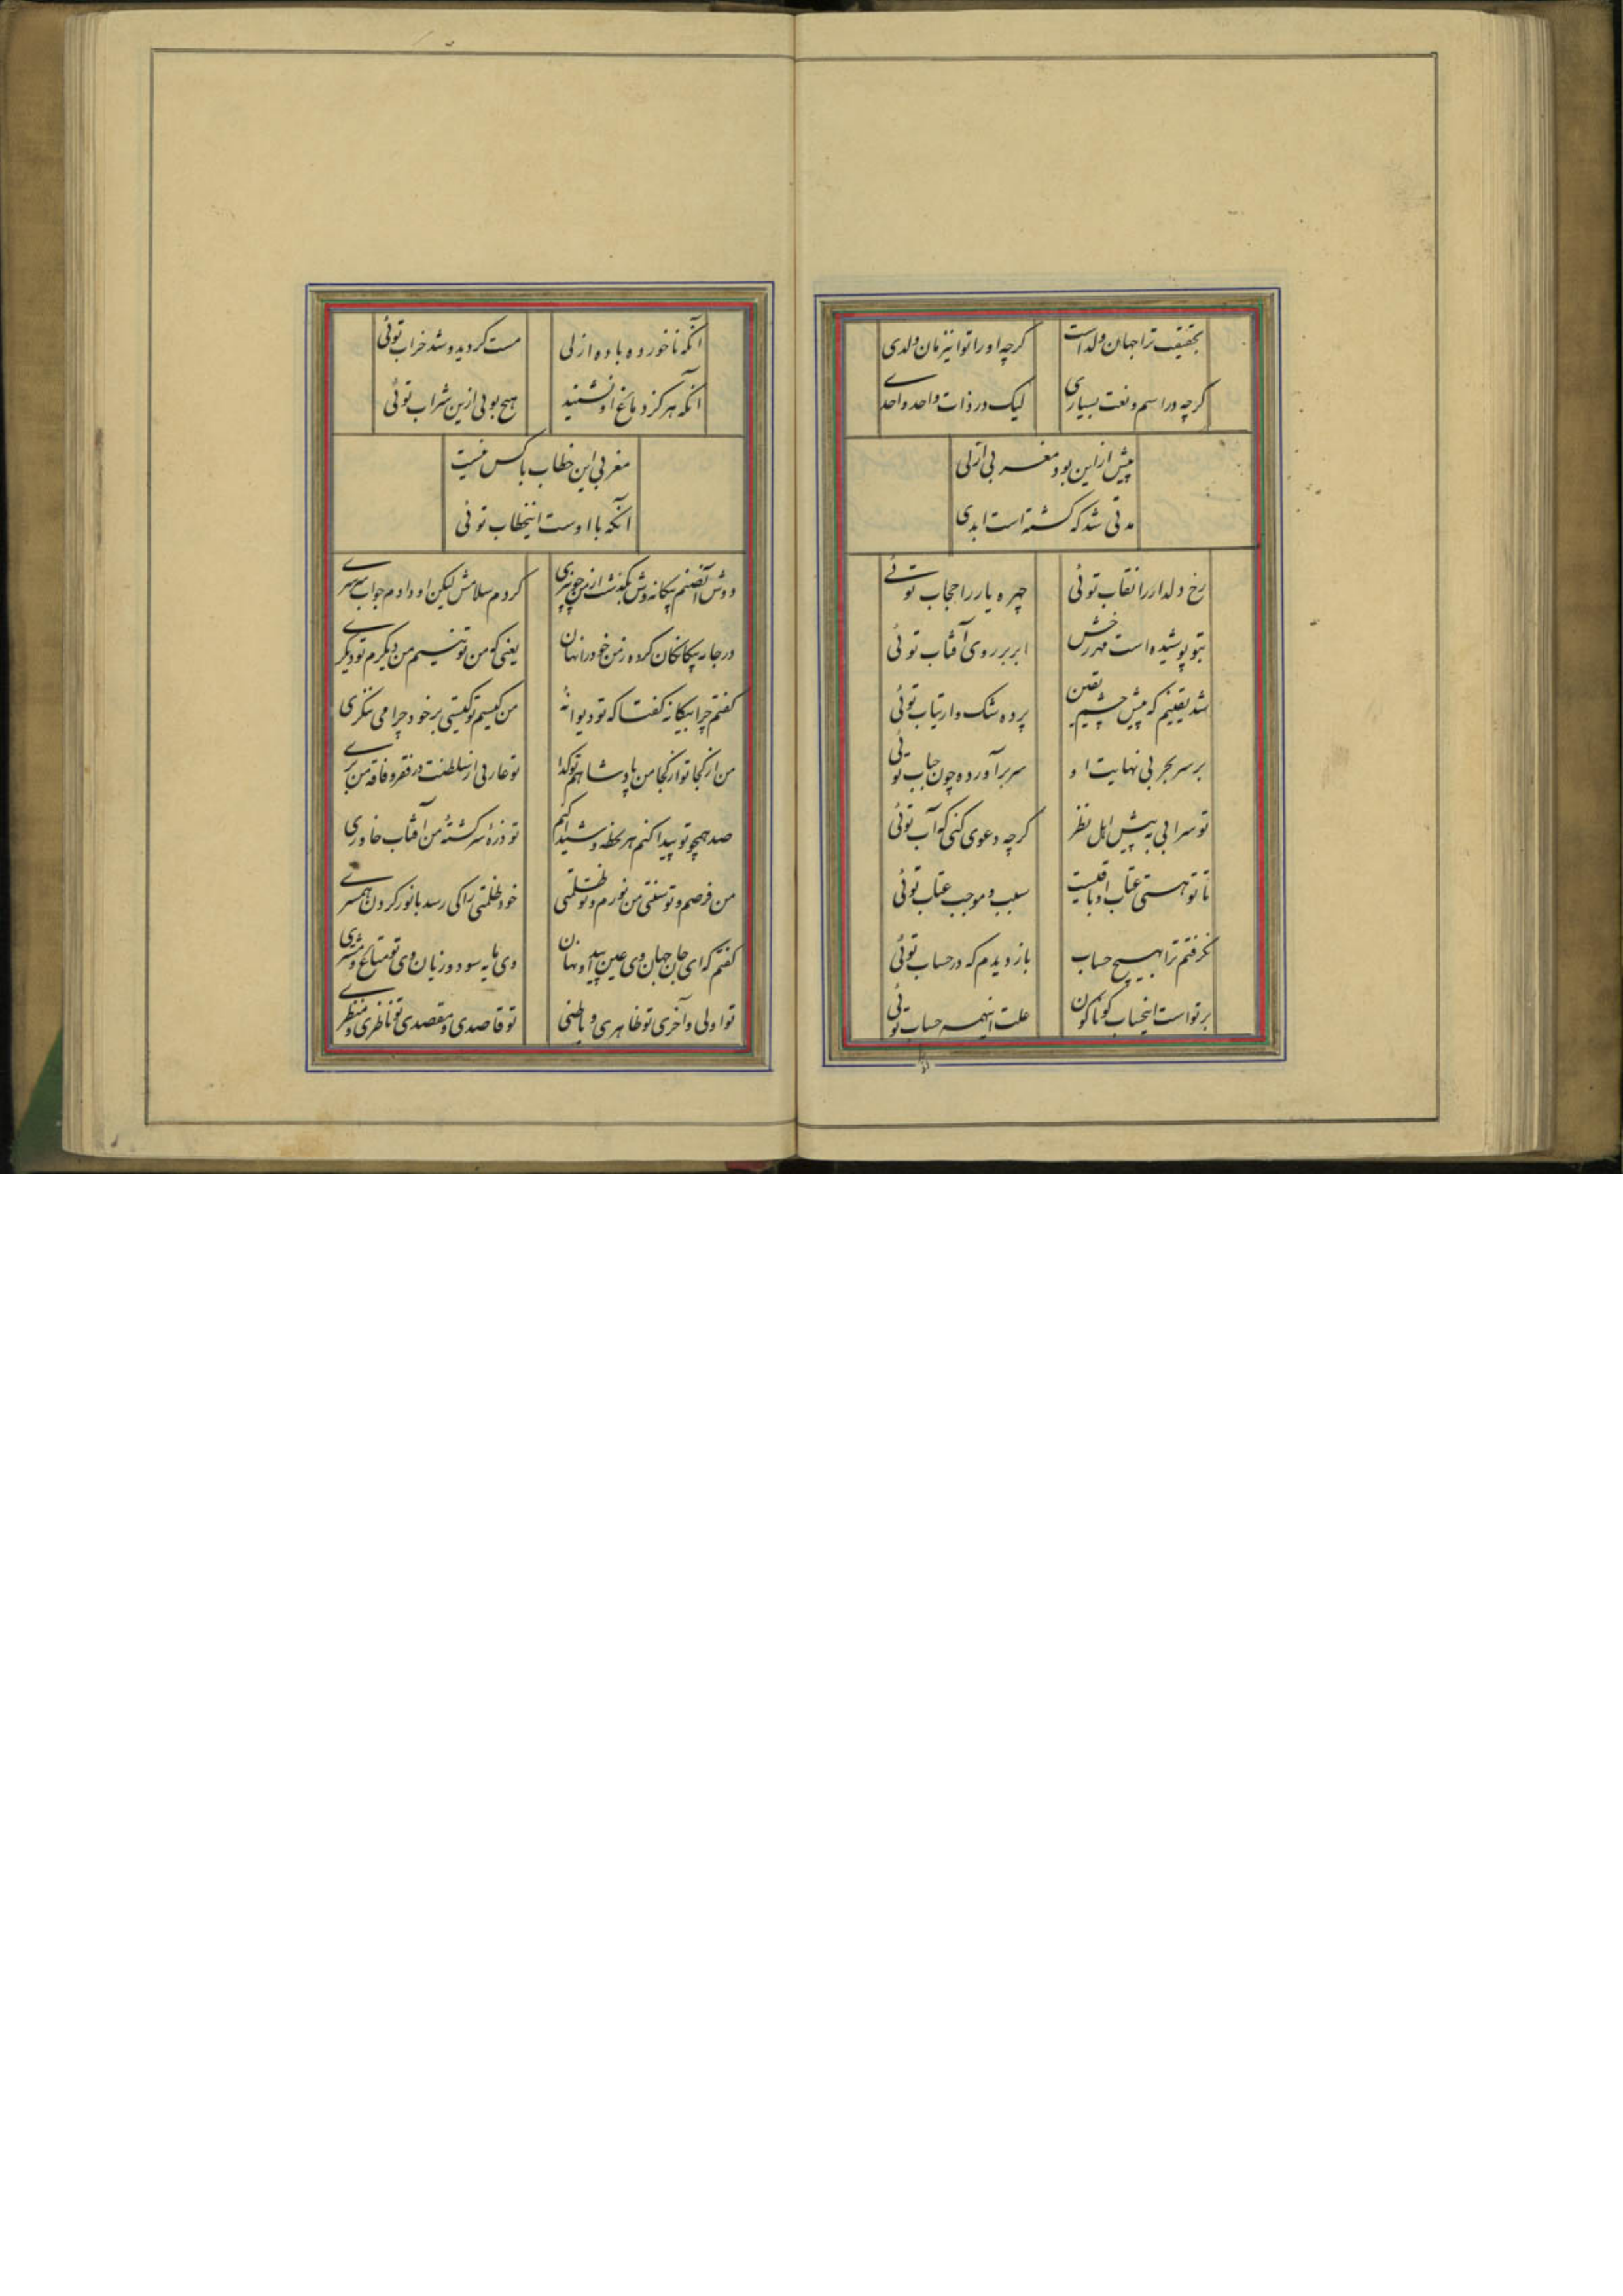 بحقیقت ترا جهان ولد است گرچه او را تو این زمان ولدی
گرچه در اسم و نعت بسیاری لیک در ذات واحد واحدی
پیش ازاین بود مغربی ازلی
مدتی شد که گشته است ابدی
رخ دلدار را نقاب توئی چهره یار را حجاب توئی
بتو پوشیده است مهر رخش ابر بر روی آفتاب توئی
شد یقینم که پیش چشم یقین پرده شک و ارتیاب توئی
بر سر بحر بی نهایت او سر برآورده چون حباب توئی
تو سرابی به پیش اهل نظر گرچه دعوی کنی که آب توئی
تا تو هستی عتاب او باقیست سبب و موجب عتاب توئی
نگرفتم ترا بهیچ حساب باز دیدم که در حساب توئی
بر تو است اینحساب گوناگون علت اینهمه حساب توئی
آنکه ناخورده باده ازلی مست گردید و شد خراب توئی
آنکه هرگز دماغ او نشنید هیچ بویی ازین شراب توئی
مغربی این خطاب با کس نیست
آنکه با اوست اینخطاب توئی
دوش آنصنم بیگانه وش بگذشت از من چون پری کردم سلامش لیکن او دادم جواب سرسری
در جار بیگانگان کرده زمن خود را نهان یعنی که من تو نیستم من دیگرم تو دیگری
گفتم چرا بیگانه گفتا که تو دیوانهٔ من کیستم تو کیستی بر خود چرا می ننگری
من از کجا تو از کجا من پادشاهم تو گدا تو عاریی از سلطنت در فقر و فاقه من بری
صد همچو تو پیدا کنم هر لحظه و شیدا کنم تو ذرهٔ سرگشتهٔ من آفتاب خاوری
من فرضم و تو سنتی من نورم و تو ظلمتی خود ظلمتی را کی رسد با نور کردن همسری
گفتم که ای جان جهان وی عین پیدا و نهان وی مایه سود و زیان وی تو متاع و مشتری
تو اولی و آخری تو ظاهری و باطنی تو قاصدی و مقصدی تو ناظری و منظری